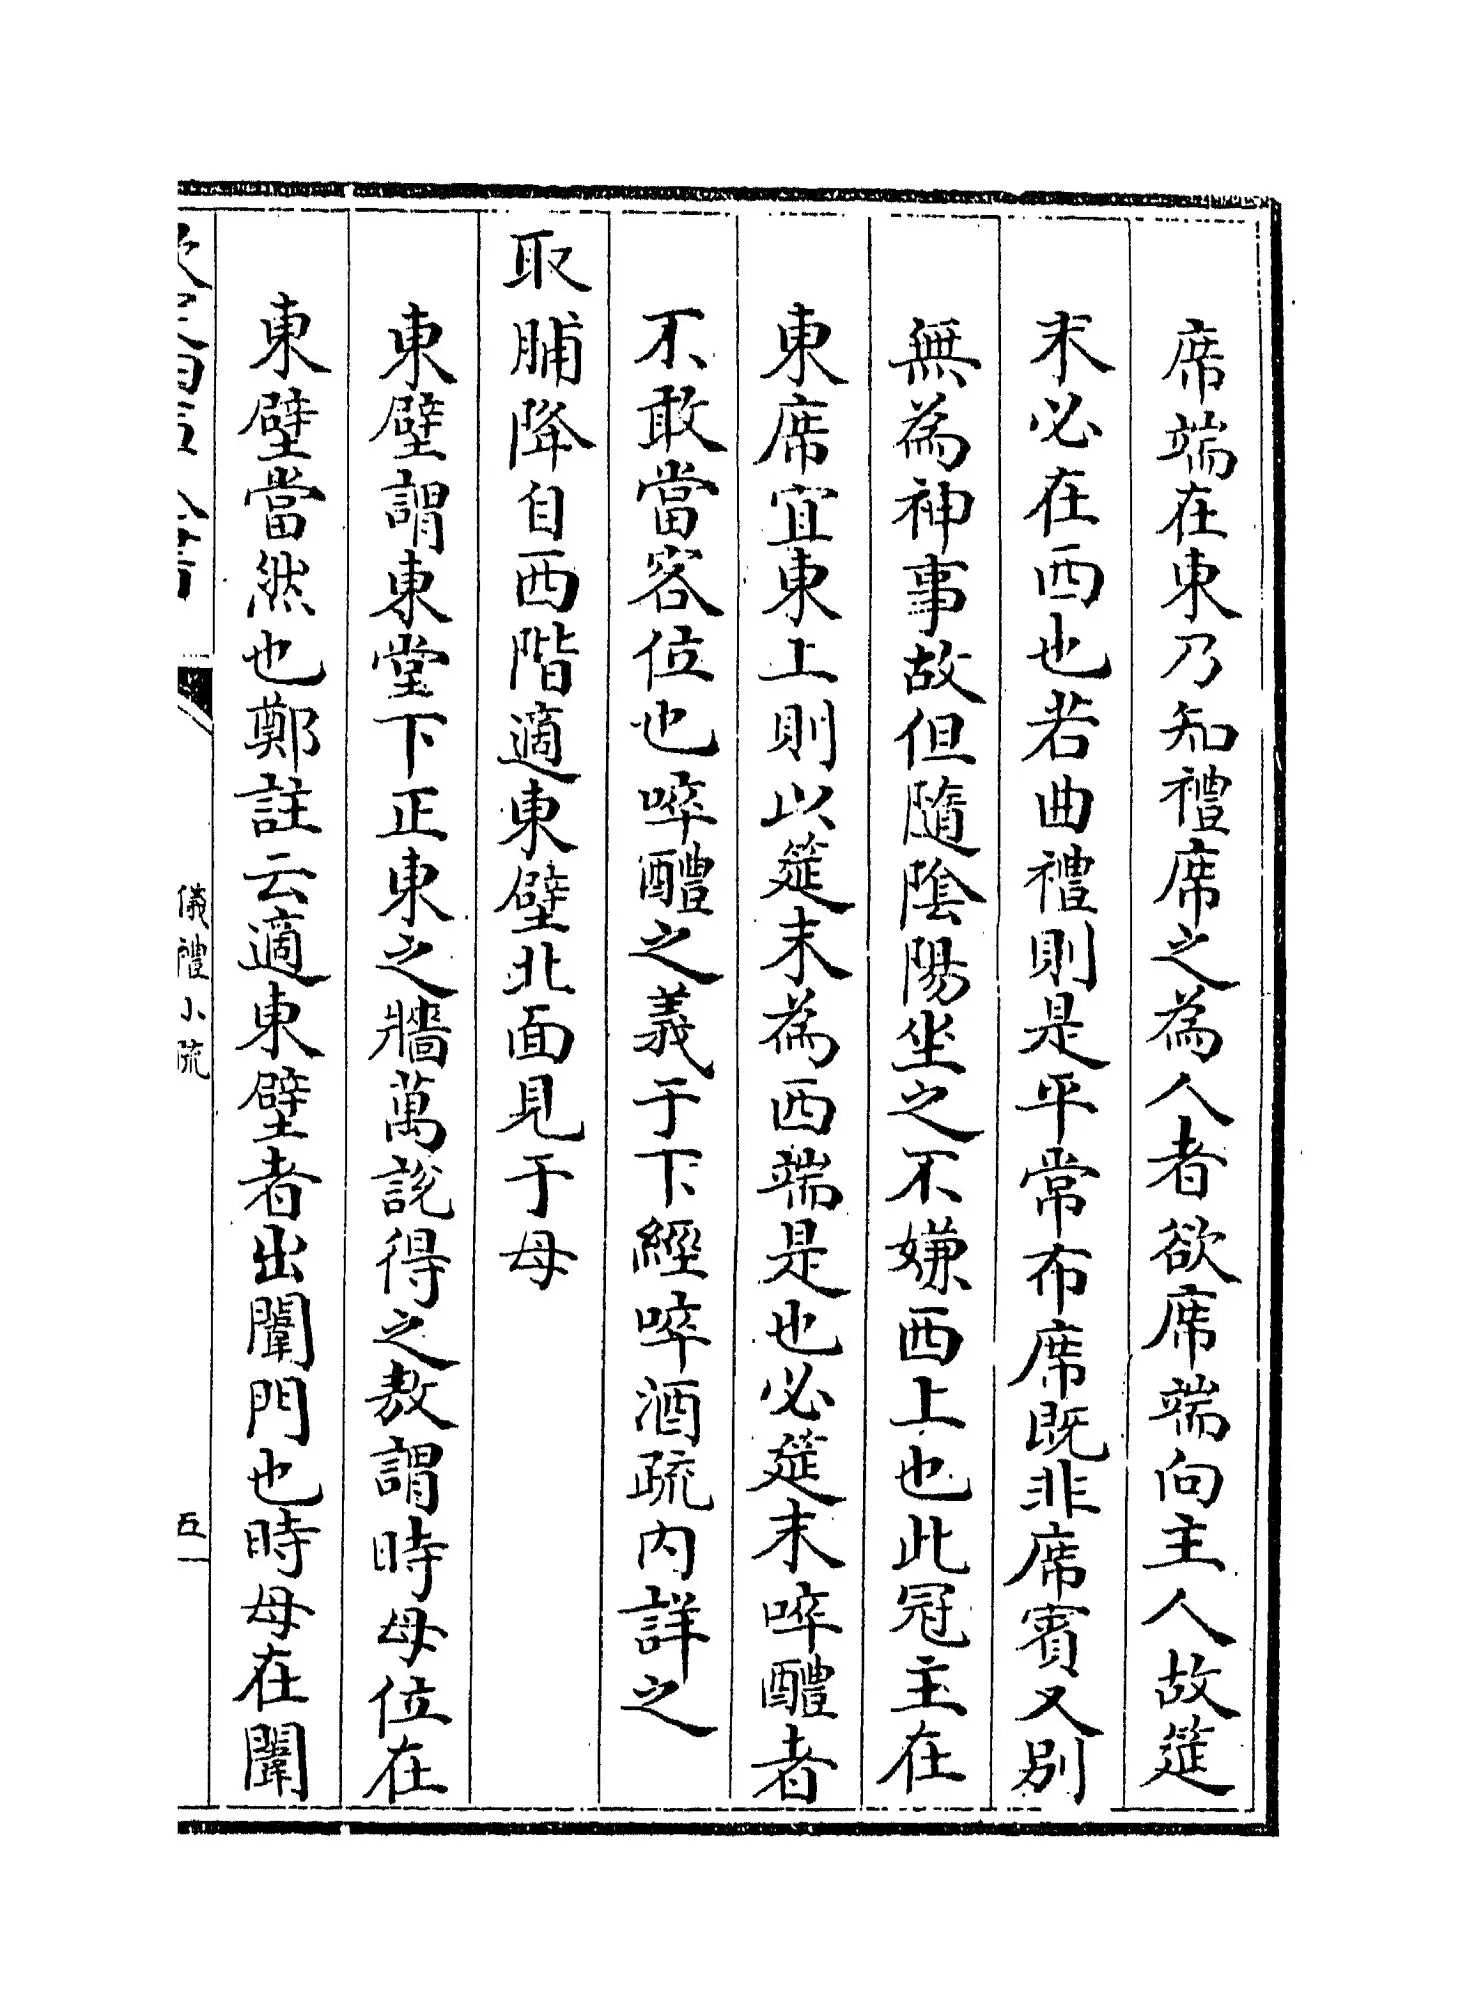 席端在東乃知禮席之為人者欲席端向主人故筵
末必在西也若曲禮則是平常布席既非席賓又別
無為神事故但隨陰陽坐之不嫌西上也此冠主在
東席宜東上則以筵末為西端是也必筵末啐醴者
不敢當客位也啐醴之義于下經啐酒疏内詳之
取脯降自西階適東壁北面見于母
東壁謂東堂下正東之牆萬說得之敖謂時母位在
東壁當然也鄭註云適東壁者出闈門也時母在闈
儀禮小疏
五